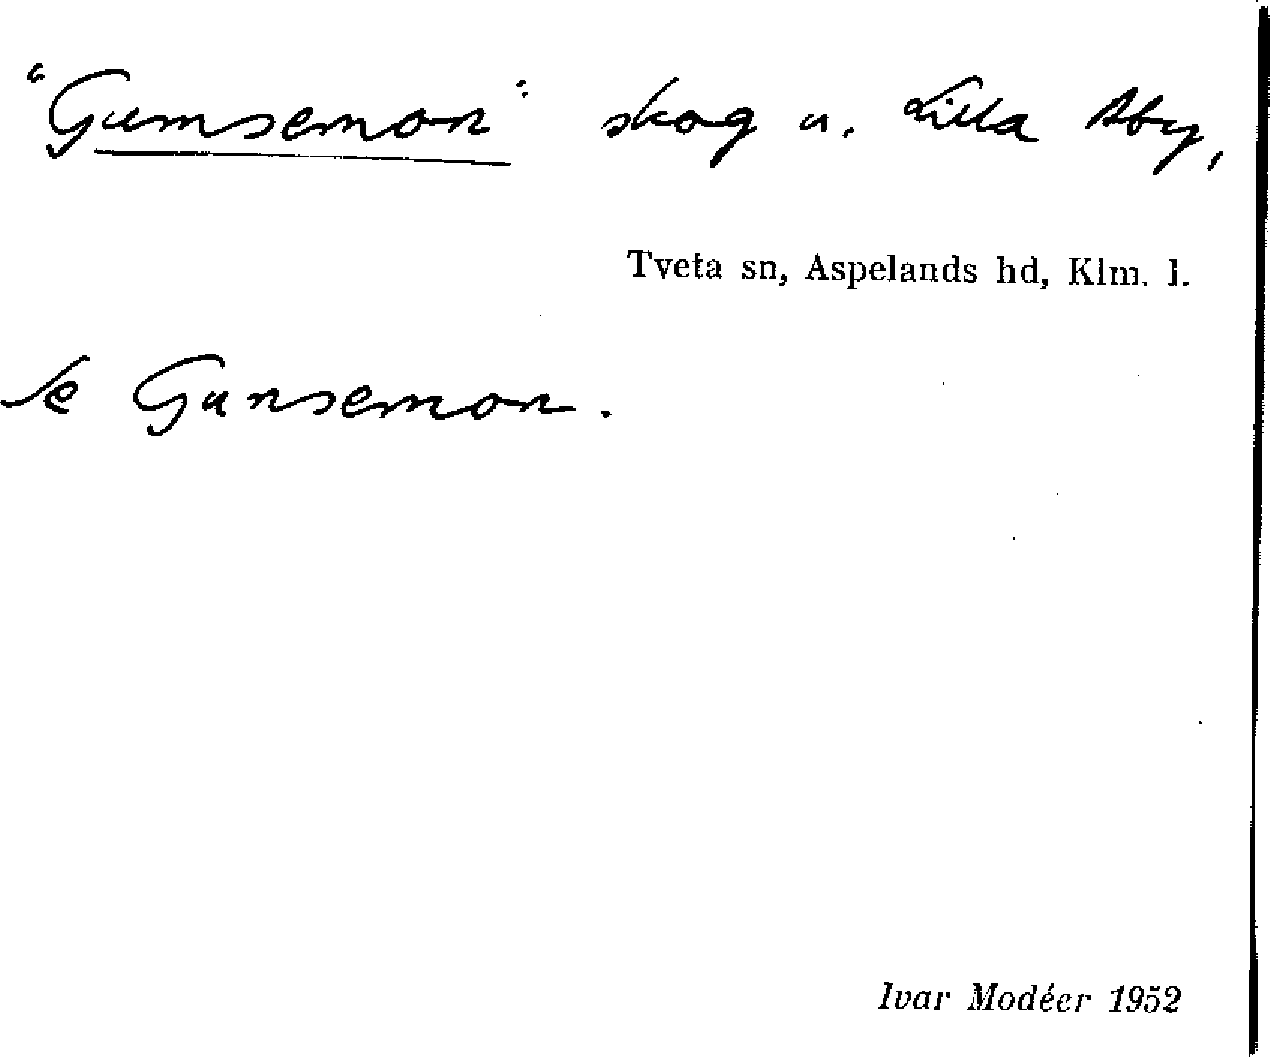 "Gumsemon" skog u. Lilla Åby,
Tveta sn, Aspelands hd, Klm. l.
Se Gunsemon.
Ivar Modéer 1952